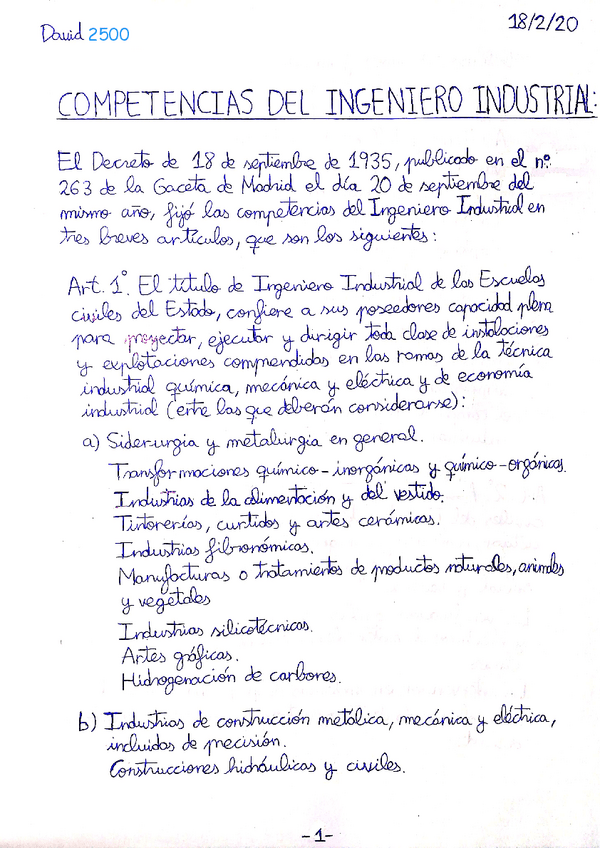 David 2500
18/2/20
COMPETENCIAS DEL INGENIERO INDUSTRIAL:
El Decreto de 18 de septiembre de 1935, publicado en el nº.
263 de la Gaceta de Madrid el día 20 de septiembre del
mismo año, fijó las competencias del Ingeniero Industrial en
tres breves artículos, que son los siguientes:
Art. 1º. El título de Ingeniero Industrial de las Escuelas
civiles del Estado, confiere a sus poseedores capacidad plena
para proyectar, ejecutar y dirigir toda clase de instalaciones
y explotaciones comprendidas en las ramas de la técnica
industrial química, mecánica y eléctrica y de economía
industrial (entre las que deberán considerarse):
a) Siderurgia y metalurgia en general.
Transformaciones químico-inorgánicas y químico-orgánicas.
Industrias de la alimentación y del vestido.
Tintorerías, curtidos y artes cerámicas.
Industrias fibronómicas.
Manufacturas o tratamientos de productos naturales, animales
y vegetales
Industrias silicotécnicas.
Artes gráficas.
Hidrogenación de carbones.
b) Industrias de construcción metálica, mecánica y eléctrica,
incluidas de precisión.
Construcciones hidráulicas y civiles.
-1-